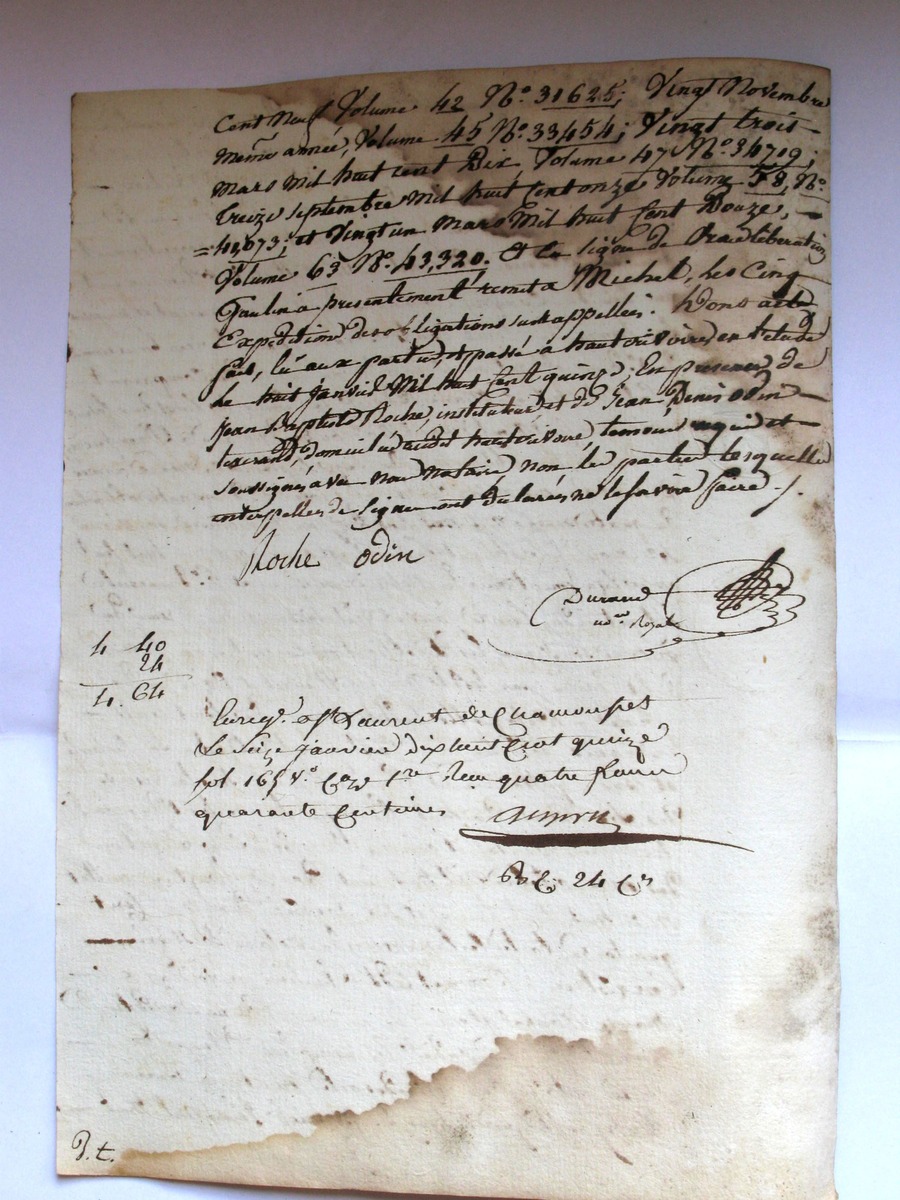 Cent Neuf Volume 42 N.º 31625; Vingt Novembre
même année, Volume 45 N.º 33,454; Vingt trois
mars mil huit cent Dix, Volume 47 N.º 34719;
treize septembre mil huit cent onze Volume 58, N.º
=41,073; et Vingt un mars Mil huit Cent Douze,
Volume 63 N.º 43,320. Et la de libération
a présentement remis a Michel, les Cinq
Expédition des obligations susappellées. Dont acte
fait, lu aux parties, et passé à hauterivoire en l'etude
Le huit Janvier Mil huit Cent quinze. En presence de
Jean Baptiste Roche, instituteur, et de Jean Denis Odin
tisserand, domiciliés audit hauterivoire, temoins requis et
soussignés avec nous Notaire, non les parties lesquelles
interpellées de signer ont déclaré ne le savoir faire ./.
Roche Odin
Durand
no.re Royal
4 40
24
4. 64
Enreg.é a St Laurent de Chamousset
Le Seize janvier dix huit Cent quinze
fol. 165 v.º Case 1.re Reçu quatre francs
quarante Centimes
24 C.es